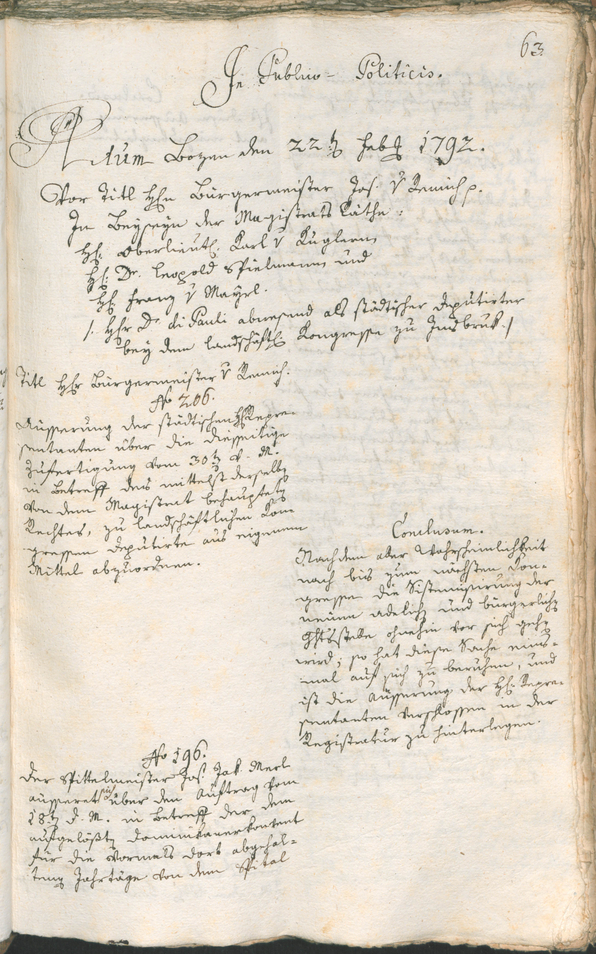 63
In Publico-Politicis.
Actum Bozen den 22t Febr 1792.
Vor Titl Hhn Bürgermeister Jos. v Remich p.
In Beyseyn der Magistrats Räthe:
Hh. Oberlieut. Karl v Kuglern
Hh. Dr. Leopold Spielmann und
Hh Franz v Mayrl.
/: Hhr Dr di Pauli abwesend als städtischer Deputirter
bey dem landschäftl. Kongresse zu Insbruk :/
Titl Hhr Bürgermeister v Remich:
No 206.
Äusserung der städtischen Hh Repre-
sentanten über die diesseitige
Zufertigung vom 30t v. M.
in Betreff des mittelst derselben
von dem Magistrat behaupteten
Rechtes, zu landschäftlichen Kon
gressen Deputirte aus eigenem
Mittel abzuordnen.
Conclusum.
Nachdem aller Wahrscheinlichkeit
nach bis zum nächsten Kon-
gresse die Sistemisirung der
neuen adelich und bürgerlichen
ohnehin vor sich gehen
wird; so hat diese Sache einst-
mal auf sich zu beruhen, und
ist die Äusserung der Hh. Repre-
sentanten verschlossen in der
Registratur zu hinterlegen.
No 196.
Der Spittelmeister Jos. Jak. Merl
äusseret sich über den Auftrag vom
18t d. M. in Betreff der dem
aufgelößten Dominikanerkonvent
für die vormals dort abgehal-
tenen Jahrtäge von dem Spital